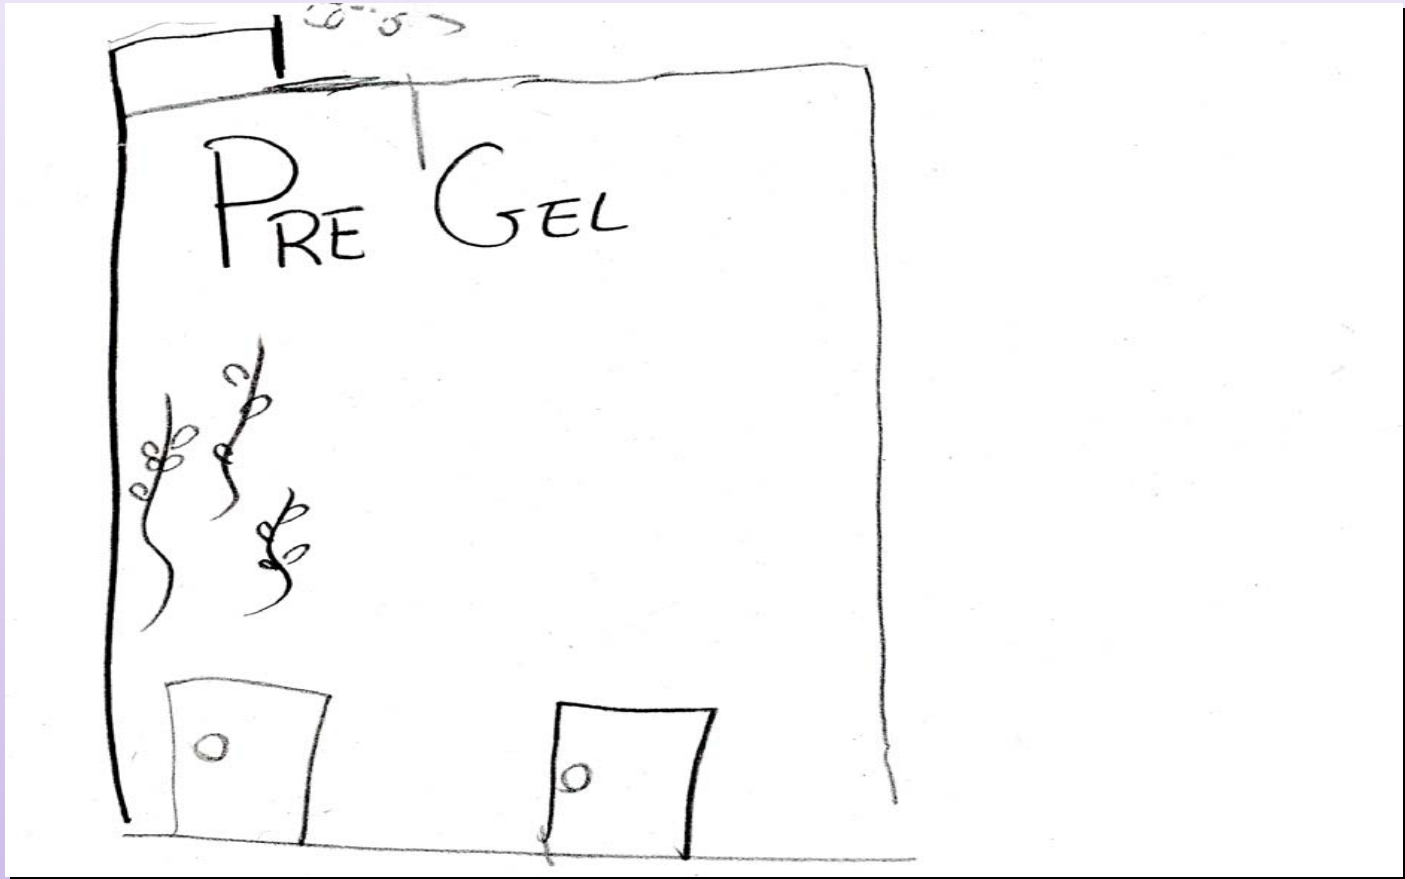 PRE GEL